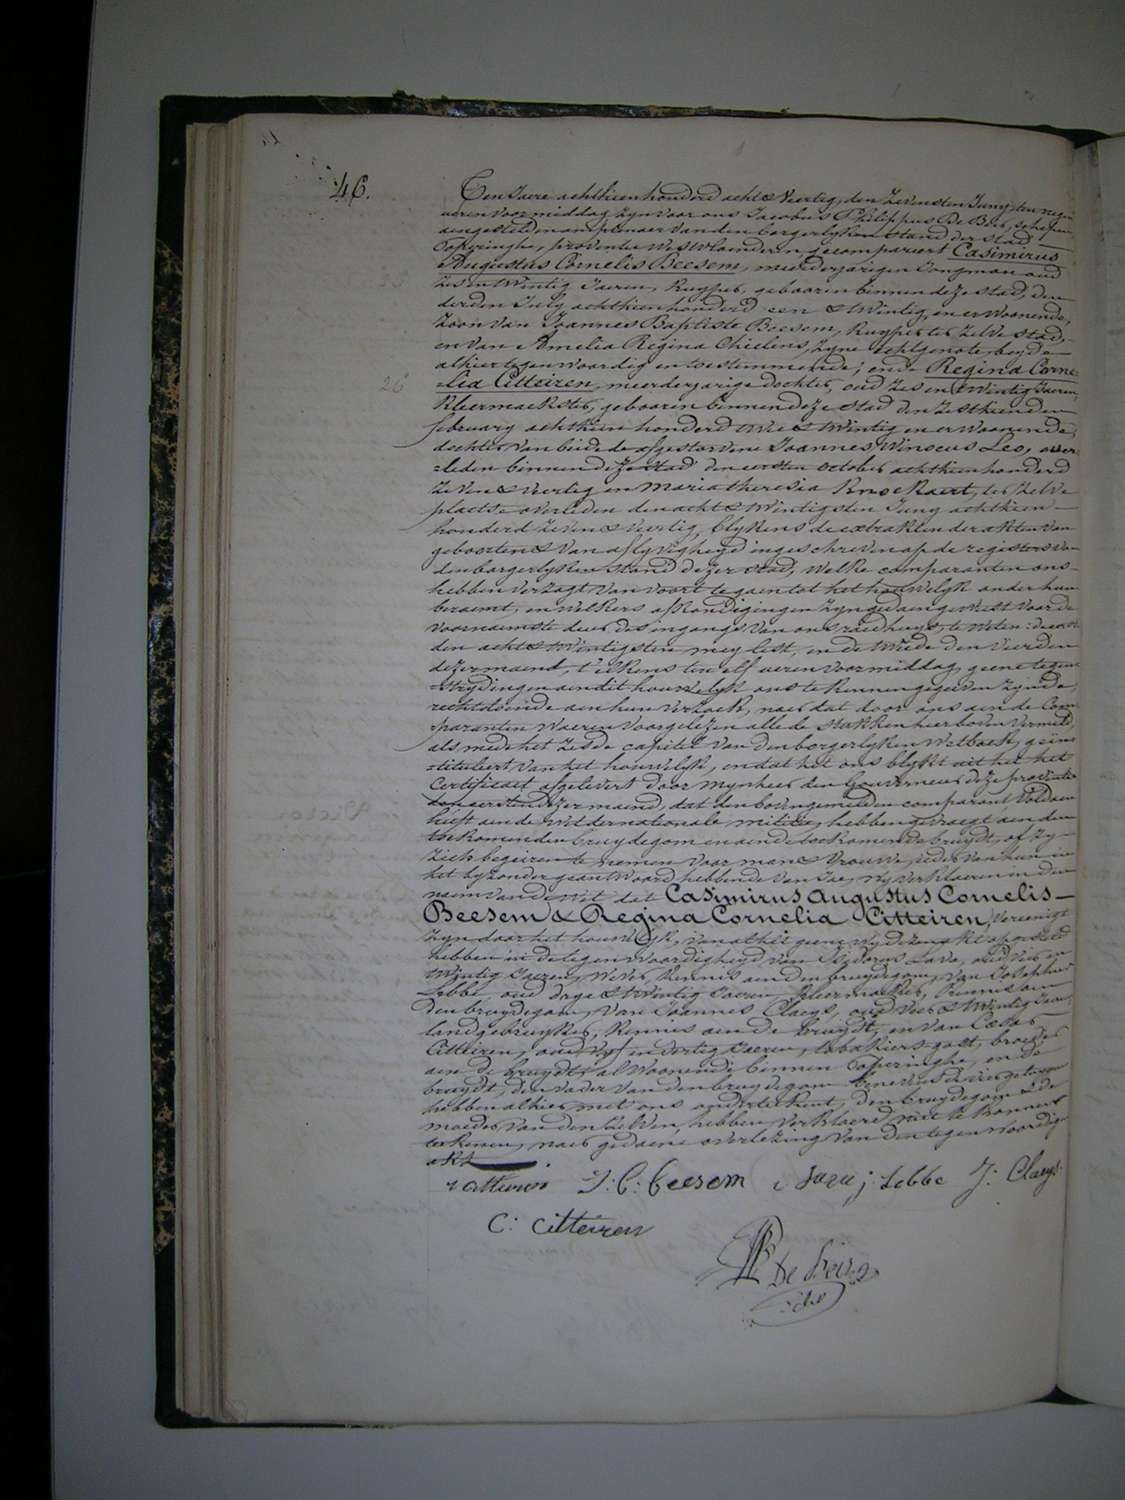 46.
Ten Jaere achthien honderd acht & Veertig, den Zevensten Juny, ten negen
ueren voormiddag zyn voor ons Jacobus Philippus De Beir, schepen
aengesteld en amptenaer van den borgerlyken stand der stad
Poperinghe, provintie Westvlaenderen gecompareert Casimirus
Augustus Cornelis Beesem, meerderjarigen Jongman oud
Zes en twintig Jaeren, Kuyper, geboren binnen deze stad, den
derden July achthien honderd een & twintig, en er woonende,
Zoon van Joannes Baptiste Beesem, Kuyper ter Zelve stad,
en van Amelia Regina Chielens, Zyne echtgenote, beyde
alhier tegenwoordig en toestemmende; ende Regina Corne=
26
=lia Citteiren, meerderjarige dochter, oud Zes en twintig Jaeren,
Kleermaekster, geboren binnen deze stad den Zesthienden
february achthien honderd twee & twintig en er woonende,
dochter van beide de afgestorvene Joannes Winocus Leo, over=
=leden binnen deze stad den eersten october achthien honderd
Zeven & veertig en Maria theresia Knockaert, ter Zelve
plaetse overleden den acht & twintigsten Juny achthien
honderd Zeven & veertig, blykens de extrakten der akten van
geboorten & van aflyvigheyd ingeschreven op de registers van
den borgerlyken stand dezer stad; welke comparanten ons
hebben verzogt van voort te gaen tot het houwelyk onder hun
beraemt, en welkers afkondigingen zyn gedaen geweest voor de
voornaemste deur des ingangs van ons raedhuys, te weten: de eerste
den acht & twintigsten mey lest, en de twede den vierden
dezer maend, t'elkens ten elf ueren voormiddag, geene tegen=
=strydingen aen dit houwelyk ons te kennen gegeven zynde,
rechtdoende aen hun verzoek, naer dat door ons aen de Com=
=paranten waeren voorgelezen alle de stukken hier boven vermeld,
als mede het Zesde capitel van den borgerlyken Wetboek, geïns=
=tituleert van het houwelyk, en dat het ons blykt uit het het
Certificaet afgelevert door mynheer den Gouverneur deze provintie
den eersten dezer maend, dat den bovengemelden comparant voldaen
heeft aen de wet der nationale militie, hebben gevraegt aen den
toekomenden bruydegom en aen de toekomende bruydt, of zy
Zich begeiren te nemen voor man & vrouwe, ieder van hun in
het byzonder geantwoord hebbende van Jae, wy verklaeren in den
naem van de wet dat Casimirus Augustus Cornelis
Beesem & Regina Cornelia Citteiren, vereenigt
Zyn door het houwelyk, van al het geene wy deze akt opgesteld
hebben in de tegenwoordigheyd van Isidorus Lava, oud vier en
twintig Jaeren, wever, Kennis aen den bruydegom, van Josephus
Lebbe, oud dry & twintig Jaeren, Kleermaeker, Kennis aen
den bruydegom, van Joannes Claeys, oud vier & twintig Jaeren
landgebruyker, Kennis aen de bruydt, en van Cesar
Citteiren, oud vyf en dertig Jaeren, tabakiersgast, broeder
aen de bruydt, al woonende binnen Poperinghe, en de
bruydt, den vader van den bruydegom benevens de vier getuygen
hebben alhier met ons onderteekent, den bruydegom & de
moeder van den Zelven, hebben verklaerd niet te konnen
teekenen, naer gedaene overlezing van den tegenwoordige
akt
J: B: beesem Lava j: Lebbe J: Claeys
C: Citteiren
De Beir